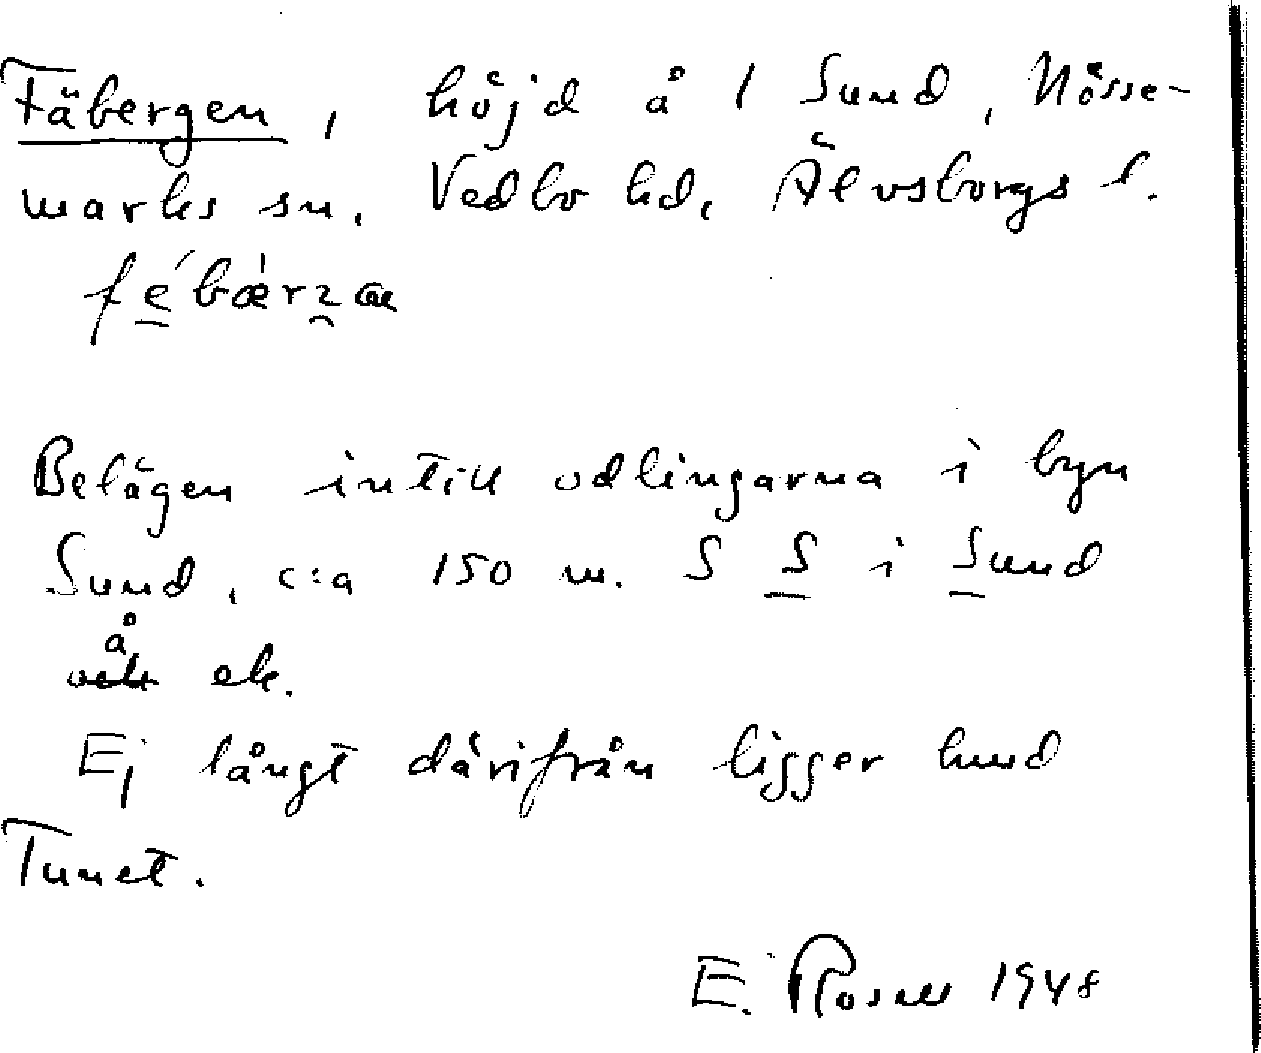 Fäbergen, höjd å 1 Sund, Nösse-
marks sn. Vedbo hd, Älvsborgs l.
Belägen intill odlingarna i byn
Sund, c:a 150 m. S S i Sund
å
ek.
Ej långt därifrån ligger hmd
Tunet.
E. Rosell 1948